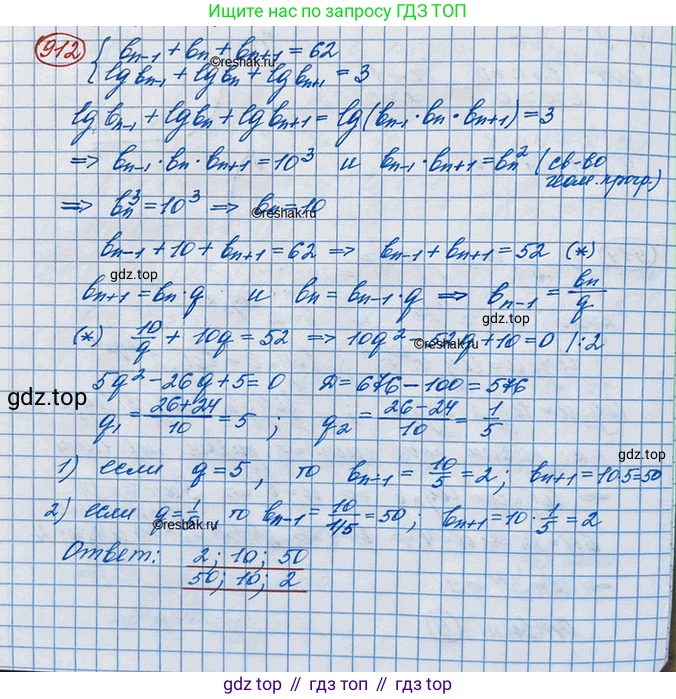 Ищите нас по запросу ГДЗ ТОП
912 { bn-1 + bn + bn+1 = 62
©reshak.ru
lg bn-1 + lg bn + lg bn+1 = 3
lg bn-1 + lg bn + lg bn+1 = lg(bn-1 · bn · bn+1) = 3
=> bn-1 · bn · bn+1 = 10³ и bn-1 · bn+1 = bn² (св-во
геом. прогр.)
=> bn³ = 10³ => bn = 10
©reshak.ru
bn-1 + 10 + bn+1 = 62 => bn-1 + bn+1 = 52 (*)
gdz.top
bn+1 = bn · q и bn = bn-1 · q => bn-1 = bn/q
gdz.top
(*) 10/q + 10q = 52 => 10q² - 52q + 10 = 0 /:2
©reshak.ru
5q² - 26q + 5 = 0 D = 676 - 100 = 576
gdz.top
q1 = (26+24)/10 = 5 ; q2 = (26-24)/10 = 1/5
1) если q = 5, то bn-1 = 10/5 = 2; bn+1 = 10·5 = 50
gdz.top
2) если q = 1/5, то bn-1 = 10/1/5 = 50; bn+1 = 10 · 1/5 = 2
©reshak.ru
Ответ: 2; 10; 50
50; 10; 2
gdz.top // гдз топ // gdz.top